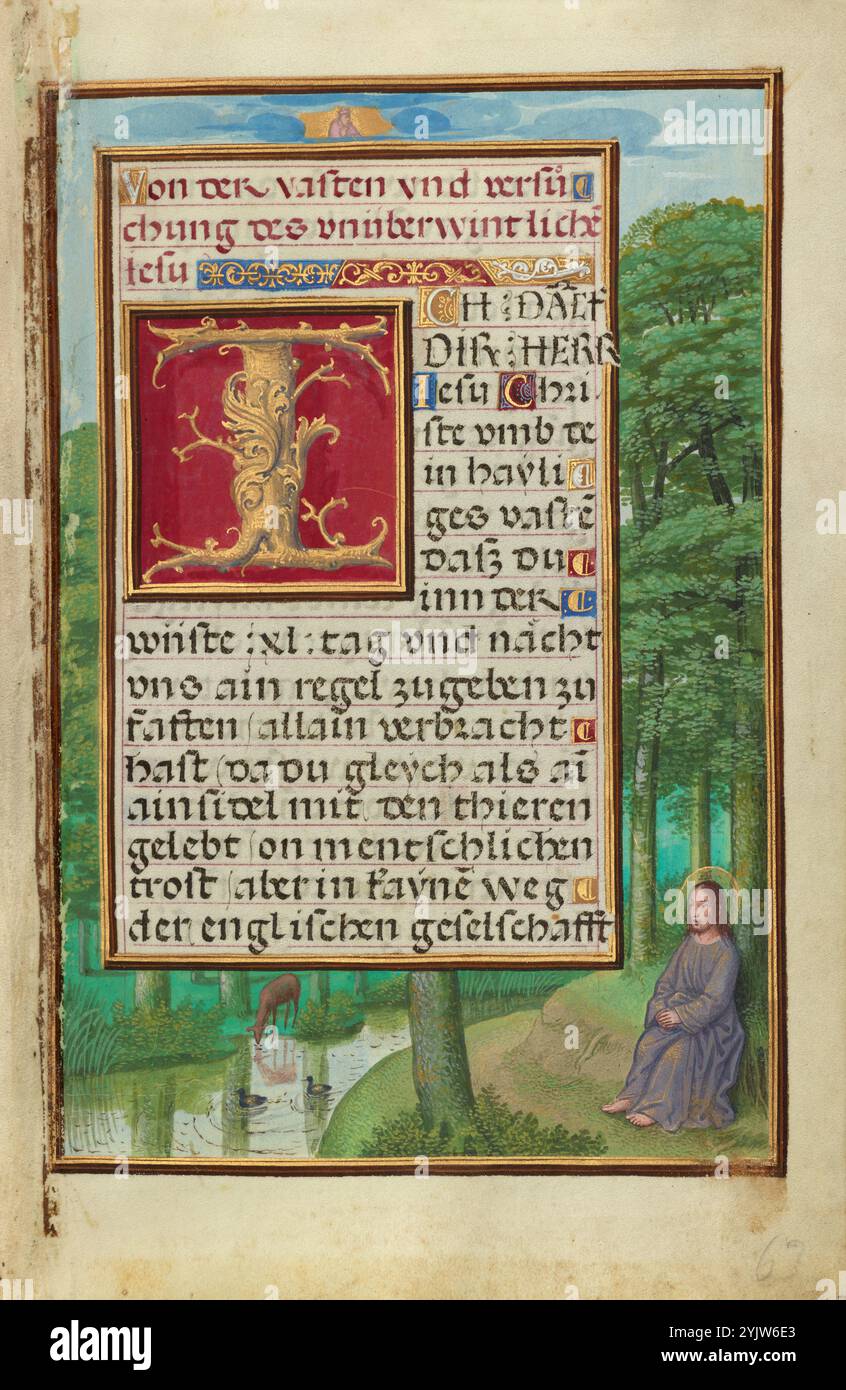 Von der vasten vnd versůͦ
chung des vnüberwintlichē
Iesu
ICH : DĀCK
DIR : HERR
Iesu Chri
ste vmb de
in hayli
ges vastē
dasz du
inn der
wüste : xl : tag vnd nacht
vns ain regel zugeben zu
fasten / allain verbracht
hast / da du gleych als aī
ainsidel mit den thieren
gelebt / on mentschlichen
trost / aber in kaynē weg
der englischen geselschafft
62
alamy
Image ID: 2YJW6E3
www.alamy.com